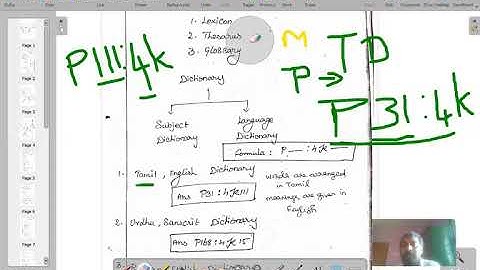 1. Lexicon
2. Thesarus
3. Glossary
Dictionary
Subject Dictionary
Language Dictionary
formula: P,— : 4k —
1. Tamil, English Dictionary
Ans P31:4k111
words are arranged in Tamil
meanings are given in English
2. Urdha, Sanscrit Dictionary
Ans P168:4k15
P111:4k
M
P →
TD
P31:4k
Page 1
Page 3
Page 4
Page 5
Page 6
Page 7